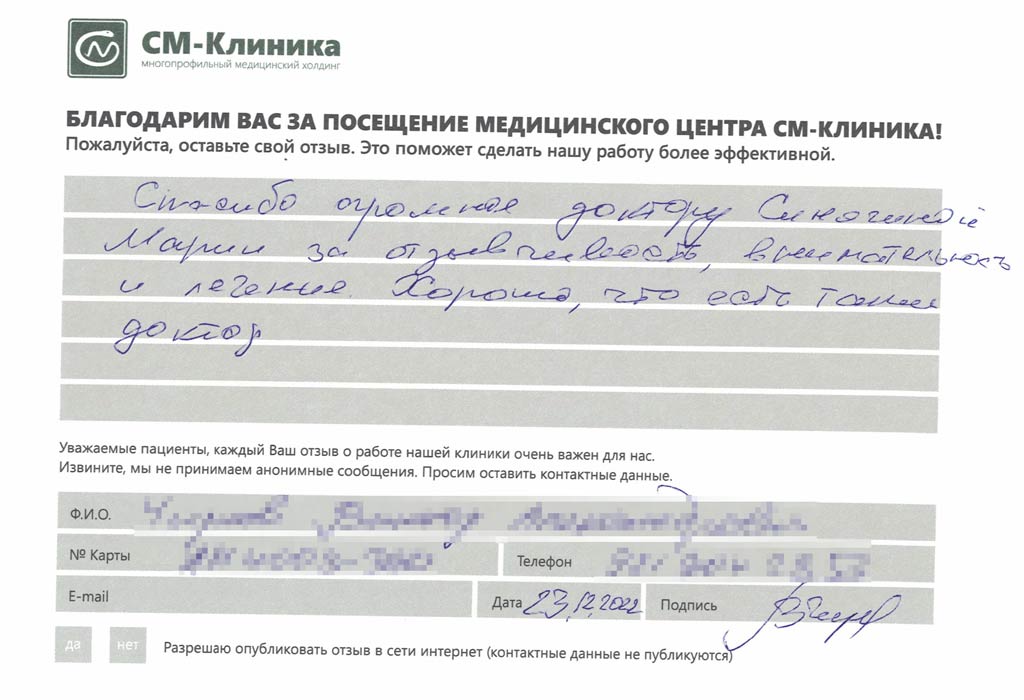 СМ-Клиника
многопрофильный медицинский холдинг
БЛАГОДАРИМ ВАС ЗА ПОСЕЩЕНИЕ МЕДИЦИНСКОГО ЦЕНТРА СМ-КЛИНИКА!
Пожалуйста, оставьте свой отзыв. Это поможет сделать нашу работу более эффективной.
Спасибо огромное доктору Синягиной
Марии за отзывчивость, внимательность
и лечение. Хорошо, что есть такие
доктор
Уважаемые пациенты, каждый Ваш отзыв о работе нашей клиники очень важен для нас.
Извините, мы не принимаем анонимные сообщения. Просим оставить контактные данные.
Ф.И.О.
№ Карты Телефон
E-mail Дата 23.12.2022 Подпись
да нет Разрешаю опубликовать отзыв в сети интернет (контактные данные не публикуются)